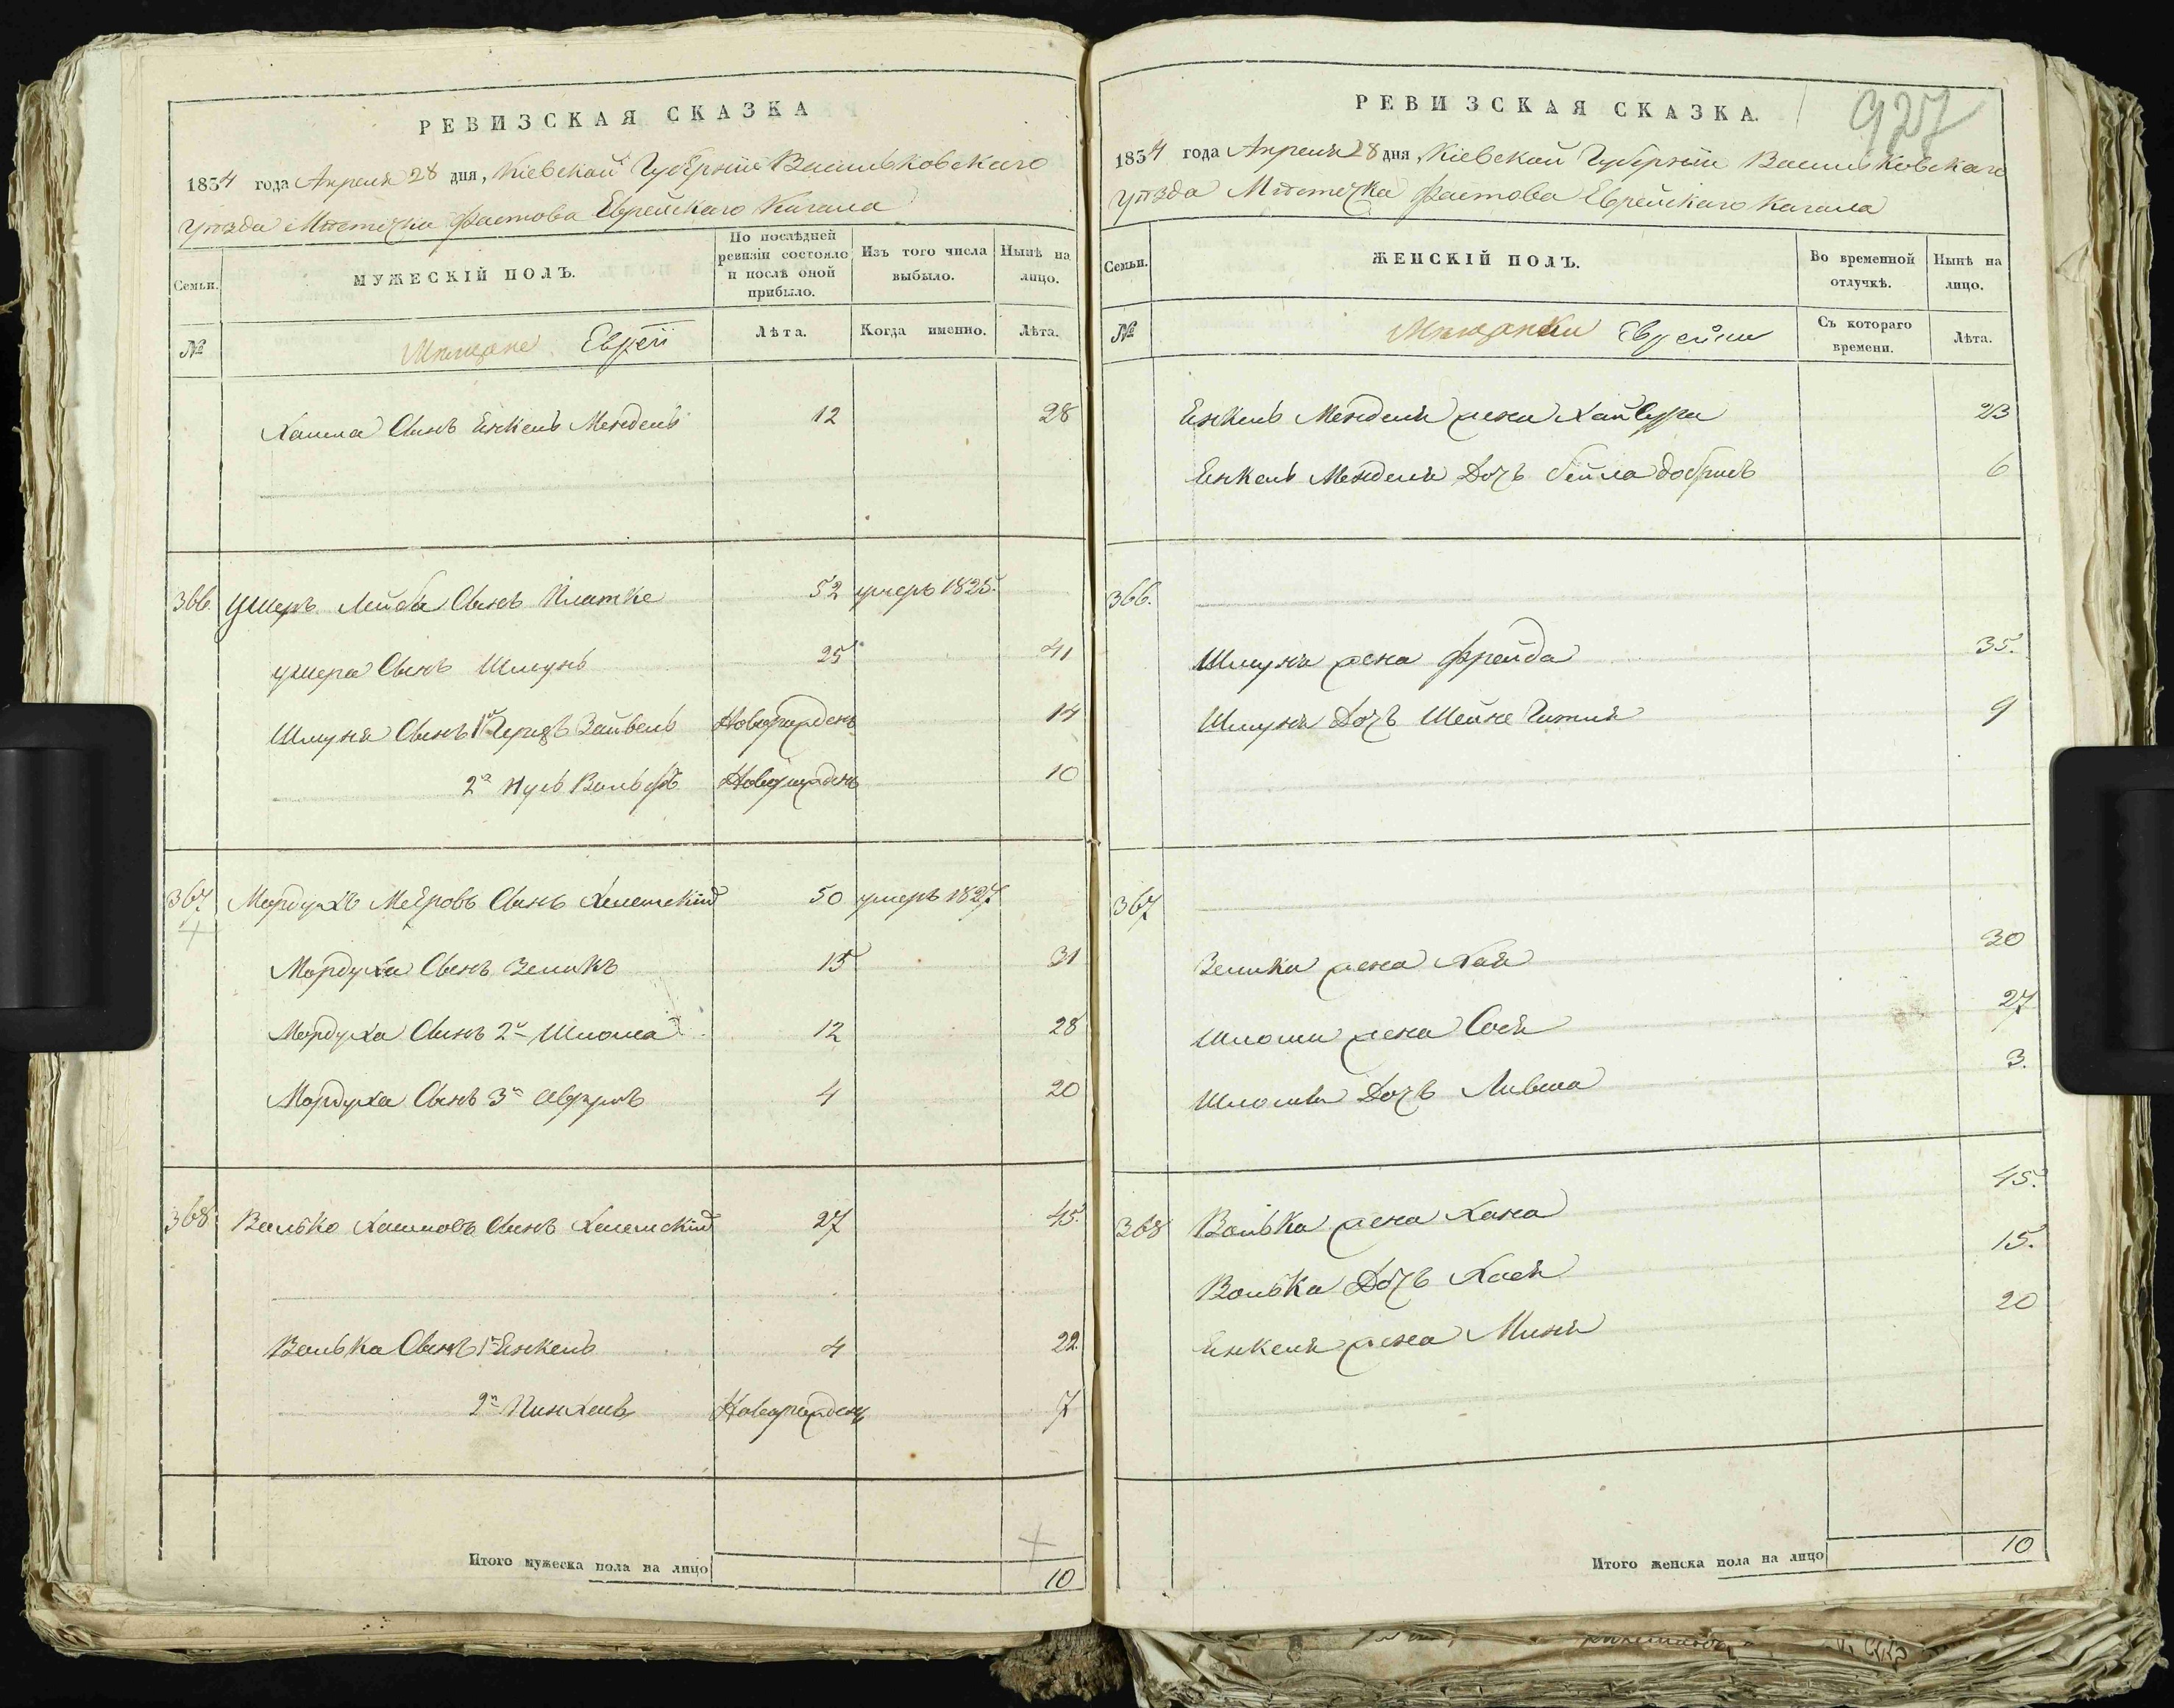 РЕВИЗСКАЯ СКАЗКА
1834 года Апреля 28 дня, Кіевской Губерніи Васильковскаго
уѣзда Мѣстечка Фастова Еврейскаго Кагала
Семьи.
МУЖЕСКІЙ ПОЛЪ.
По послѣдней ревизіи состояло и послѣ оной прибыло.
Изъ того числа выбыло.
Нынѣ на лицо.
№
Мѣщане Евреи
Лѣта.
Когда именно.
Лѣта.
Хаима Сынъ Енкель Мендель 12 28
366 Ушеръ Лейба Сынъ Платке 52 умеръ 1825.
Ушера Сынъ Шмунь 25 41
Шмуня Сынъ 1й Зайвель Новорожденъ 14
2й Нусь Вольфъ Новорожденъ 10
367 Мордухъ Меѣровъ Сынъ 50 умеръ 1827
Мордуха Сынъ Зеликъ 15 31
Мордуха Сынъ 2й Шлома 12 28
Мордуха Сынъ 3й 4 20
368. Волько Хаимовъ Сынъ 27 45.
Волька Сынъ 1й Енкель 4 22.
2й Пинхель Новорожденъ 7
Итого мужеска пола на лицо 10
927
РЕВИЗСКАЯ СКАЗКА.
1834 года Апреля 28 дня, Кіевской Губерніи Васильковскаго
уѣзда Мѣстечка Фастова Еврейскаго Кагала
Семьи.
ЖЕНСКІЙ ПОЛЪ.
Во временной отлучкѣ.
Нынѣ на лицо.
№
Мѣщанки Еврейки
Съ котораго времени.
Лѣта.
Енкель Менделя жена Хая Сура 23
Енкель Менделя Дочь Бейла Добришъ 6
366.
Шмуня жена Фрейда 35.
Шмуня Дочь Шейне Гитля 9
367
Зелика жена Хая 30
Шломы жена Сося 27
Шломы Дочь Ливша 3.
368 Волька жена Хана 45.
Волька Дочь Хася 15.
Енкеля жена Миня 20
Итого женска пола на лицо 10